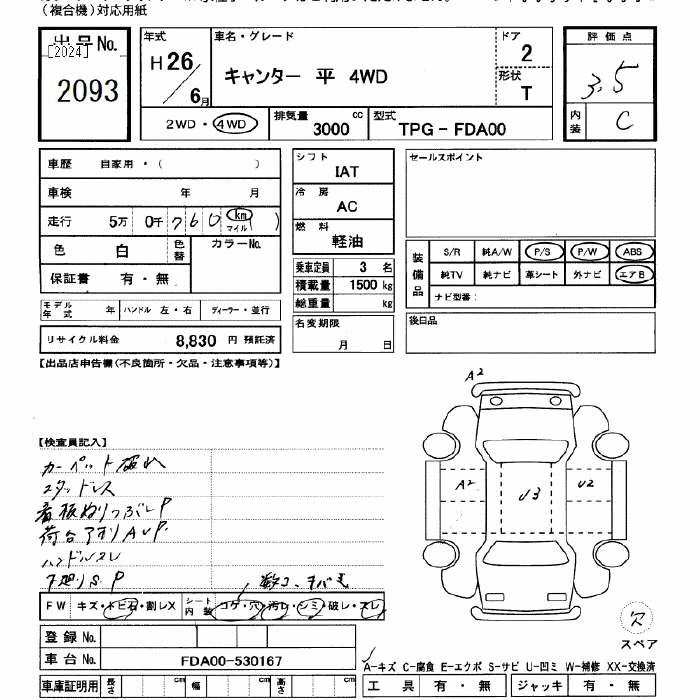 （複合機）対応用紙
出品No.
[2024]
2093
年式
H26/6月
車名・グレード
キャンター 平 4WD
ドア
2
形状
T
評価点
3.5
内装
C
2WD・4WD
排気量
3000 cc
型式
TPG-FDA00
車歴 自家用・（ ）
車検 年 月
走行 5万 0千 760 (km マイル)
色 白 色替 カラーNo.
保証書 有・無
シフト
IAT
冷房
AC
燃料
軽油
乗車定員 3 名
積載量 1500 kg
総重量 kg
名変期限
月 日
セールスポイント
装備品
S/R 純A/W P/S P/W ABS
純TV 純ナビ 革シート 外ナビ エアB
ナビ型番：
後日品
モデル年式 年 ハンドル 左・右 ディーラー・並行
リサイクル料金 8,830 円 預託済
【出品店申告欄（不良箇所・欠品・注意事項等）】
【検査員記入】
カーペット破れ
スタッドレス
看板ぬりつぶしP
荷台アオリAUP
ハンドルスレ
下廻りS P
A2
A2
U3
U2
FW キズ・トビ石・割レX シート内装 コゲ・穴・汚レ・シミ・破レ・スレ
登録No.
車台No. FDA00-530167
車庫証明用 長さ cm 幅 cm 高さ cm
欠
スペア
A-キズ C-腐食 E-エクボ S-サビ U-凹ミ W-補修 XX-交換済
工具 有・無 ジャッキ 有・無